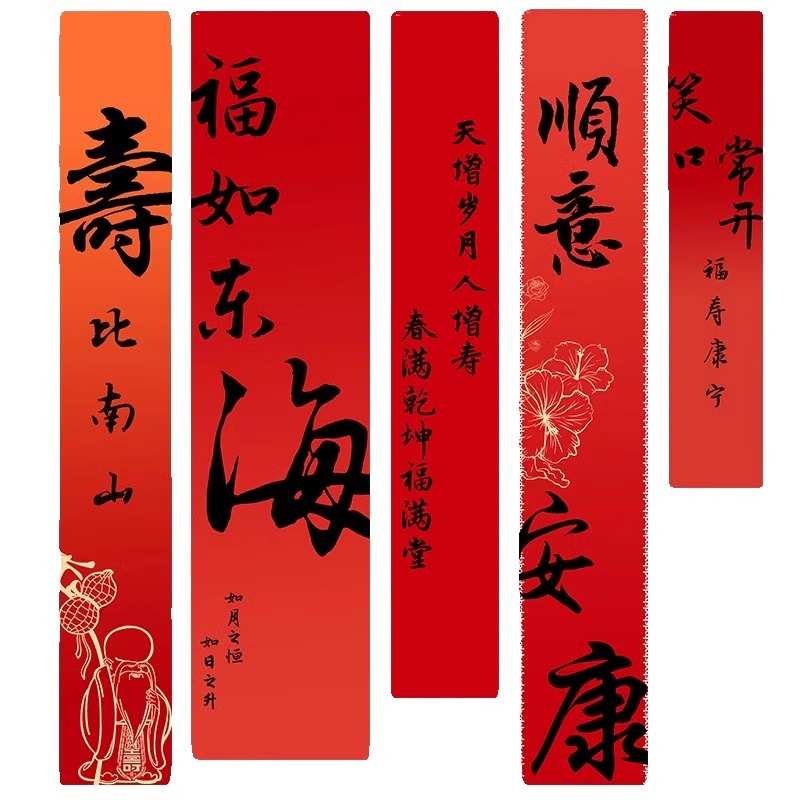 壽比南山
福如东海
如月之恒
如日之升
天增岁月人增寿
春满乾坤福满堂
順意
安康
笑口
常开
福寿康宁